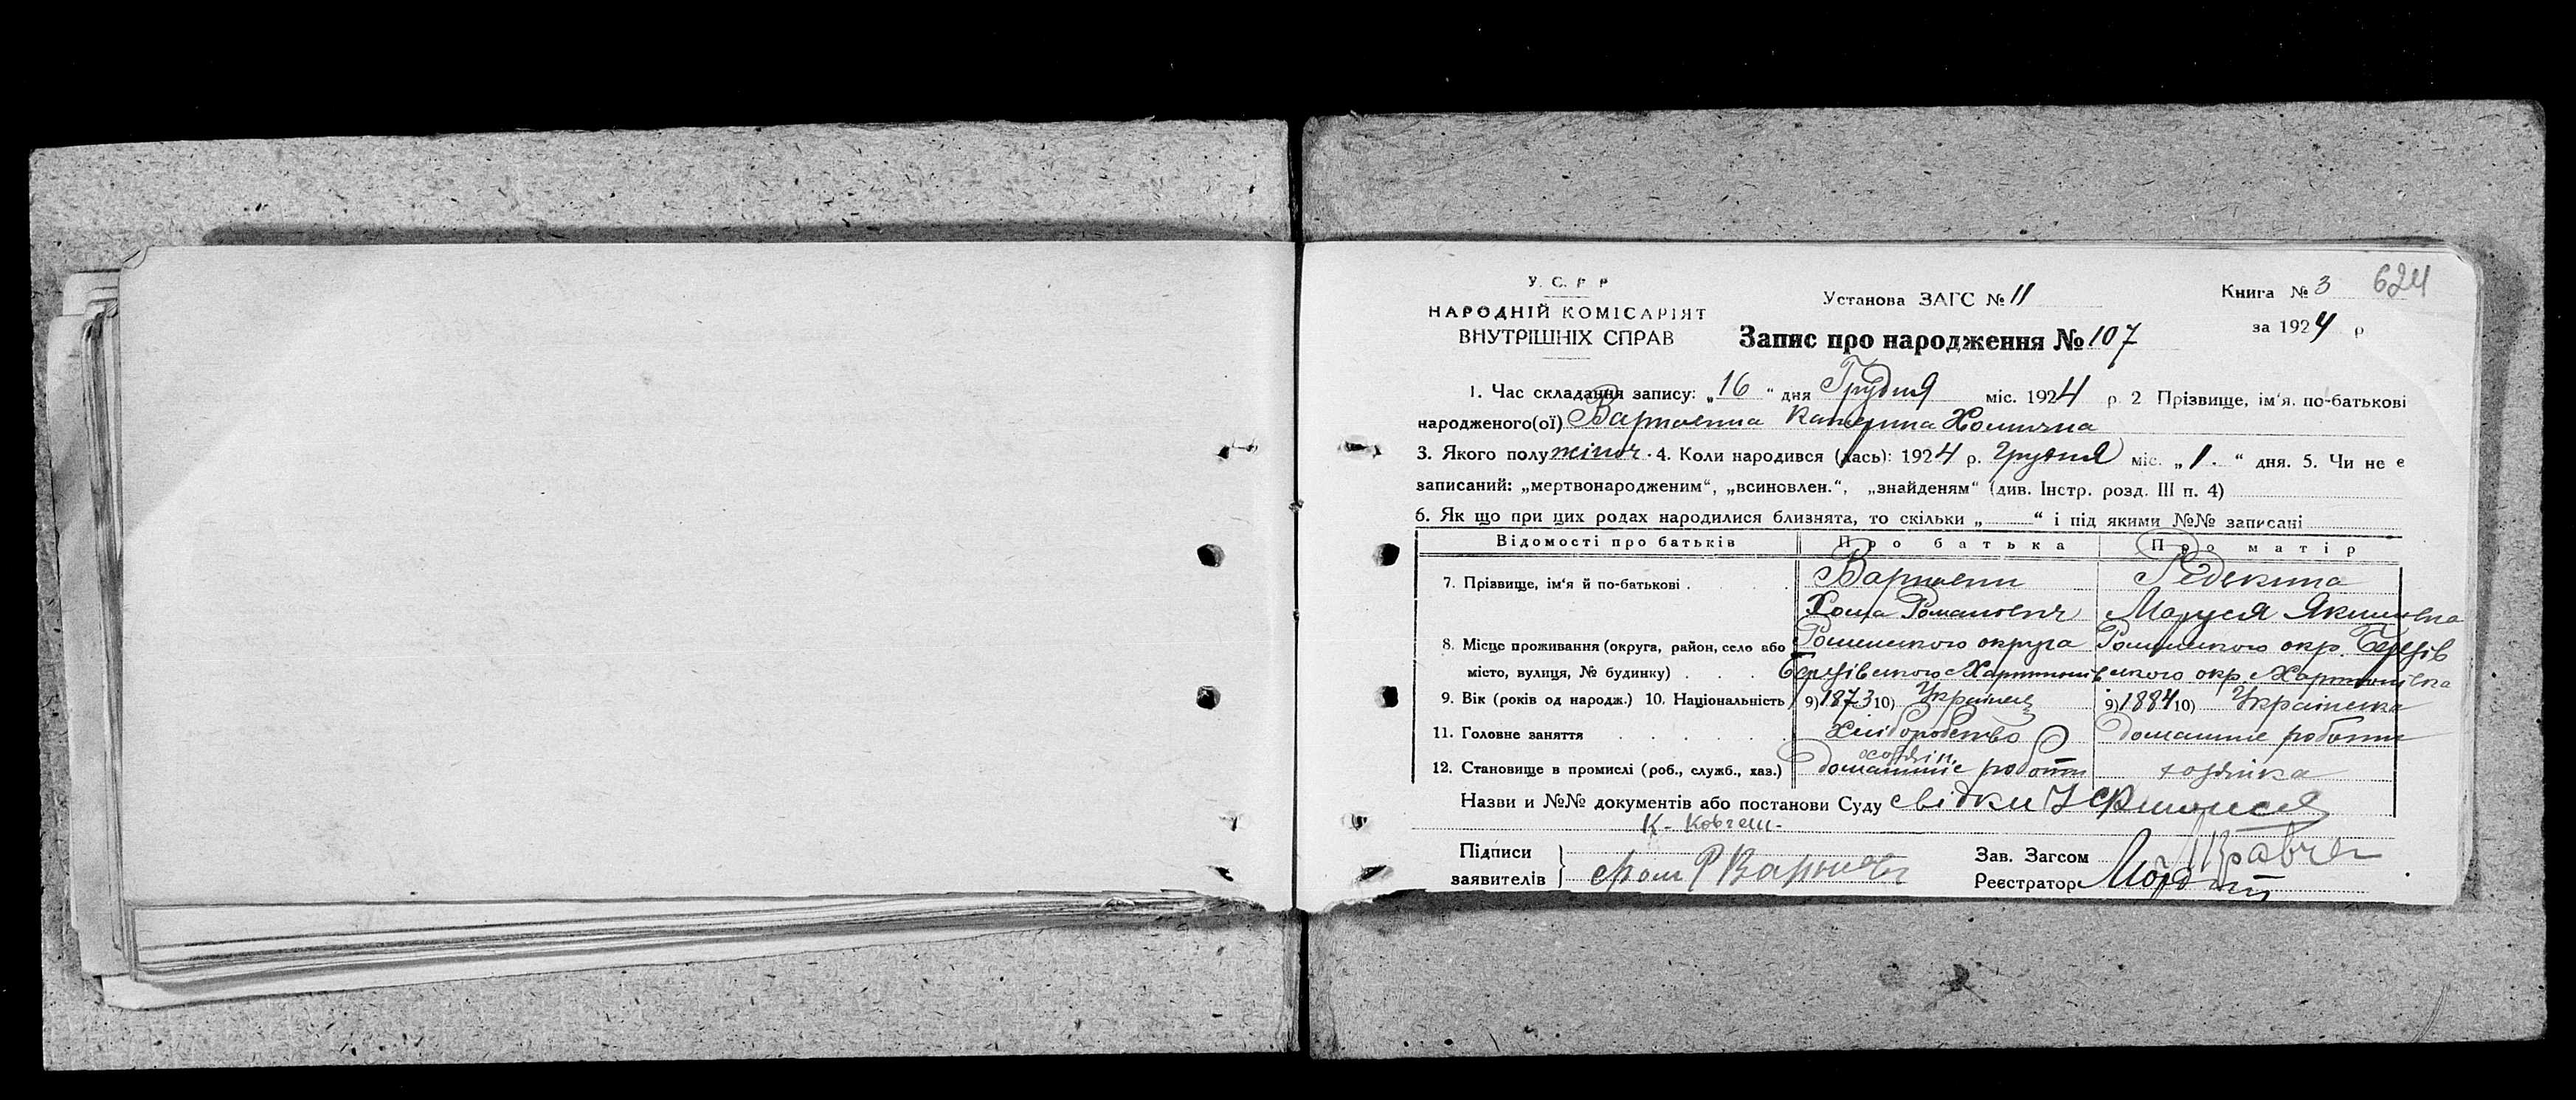 У. С. Р Р
НАРОДНІЙ КОМІСАРІЯТ
ВНУТРІШНІХ СПРАВ
Установа ЗАГС № 11
Запис про народження № 107
Книга № 3 624
за 1924 р
1. Час складання запису: „16“ дня Грудня міс. 1924 р. 2 Прізвище, ім'я, по-батькові
народженого(ої) Катерина Хомична
3. Якого полу жіноч. 4. Коли народився (лась): 1924 р. Грудня міс. „1.“ дня. 5. Чи не є
записаний: „мертвонародженим“, „всиновлен.“, „знайденям“ (див. Інстр. розд. III п. 4)
6. Як що при цих родах народилися близнята, то скільки „ “ і під якими №№ записані
Відомості про батьків Про батька Про матір
7. Прізвище, ім'я й по-батькові .
Хома Романович Маруся Якимовна
8. Місце проживання (округа, район, село або Роменского округа Роменского окр. Березів
місто, вулиця, № будинку) . . . Березівского ского окр.
9. Вік (років од народж.) 10. Національність 9) 1873 10) Українец 9) 1884 10) Українка
11. Головне заняття . . . . . Хліборобство домашнє роботи
хозяін
12. Становище в промислі (роб., служб., хаз.) домашнє роботи хозяіка
Назви и №№ документів або постанови Суду свідки
К.
Підписи
заявителів
Зав. Загсом
Реєстратор